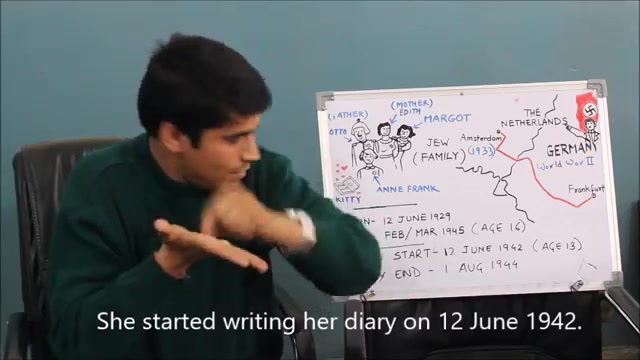 (FATHER)
OTTO
(MOTHER)
EDITH
MARGOT
JEW
(FAMILY)
ANNE FRANK
KITTY
THE
NETHERLANDS
Amsterdam
(1933)
GERMANY
World War II
Frankfurt
- 12 JUNE 1929
FEB/MAR 1945 (AGE 16)
START - 12 JUNE 1942 (AGE 13)
END - 1 AUG 1944
She started writing her diary on 12 June 1942.